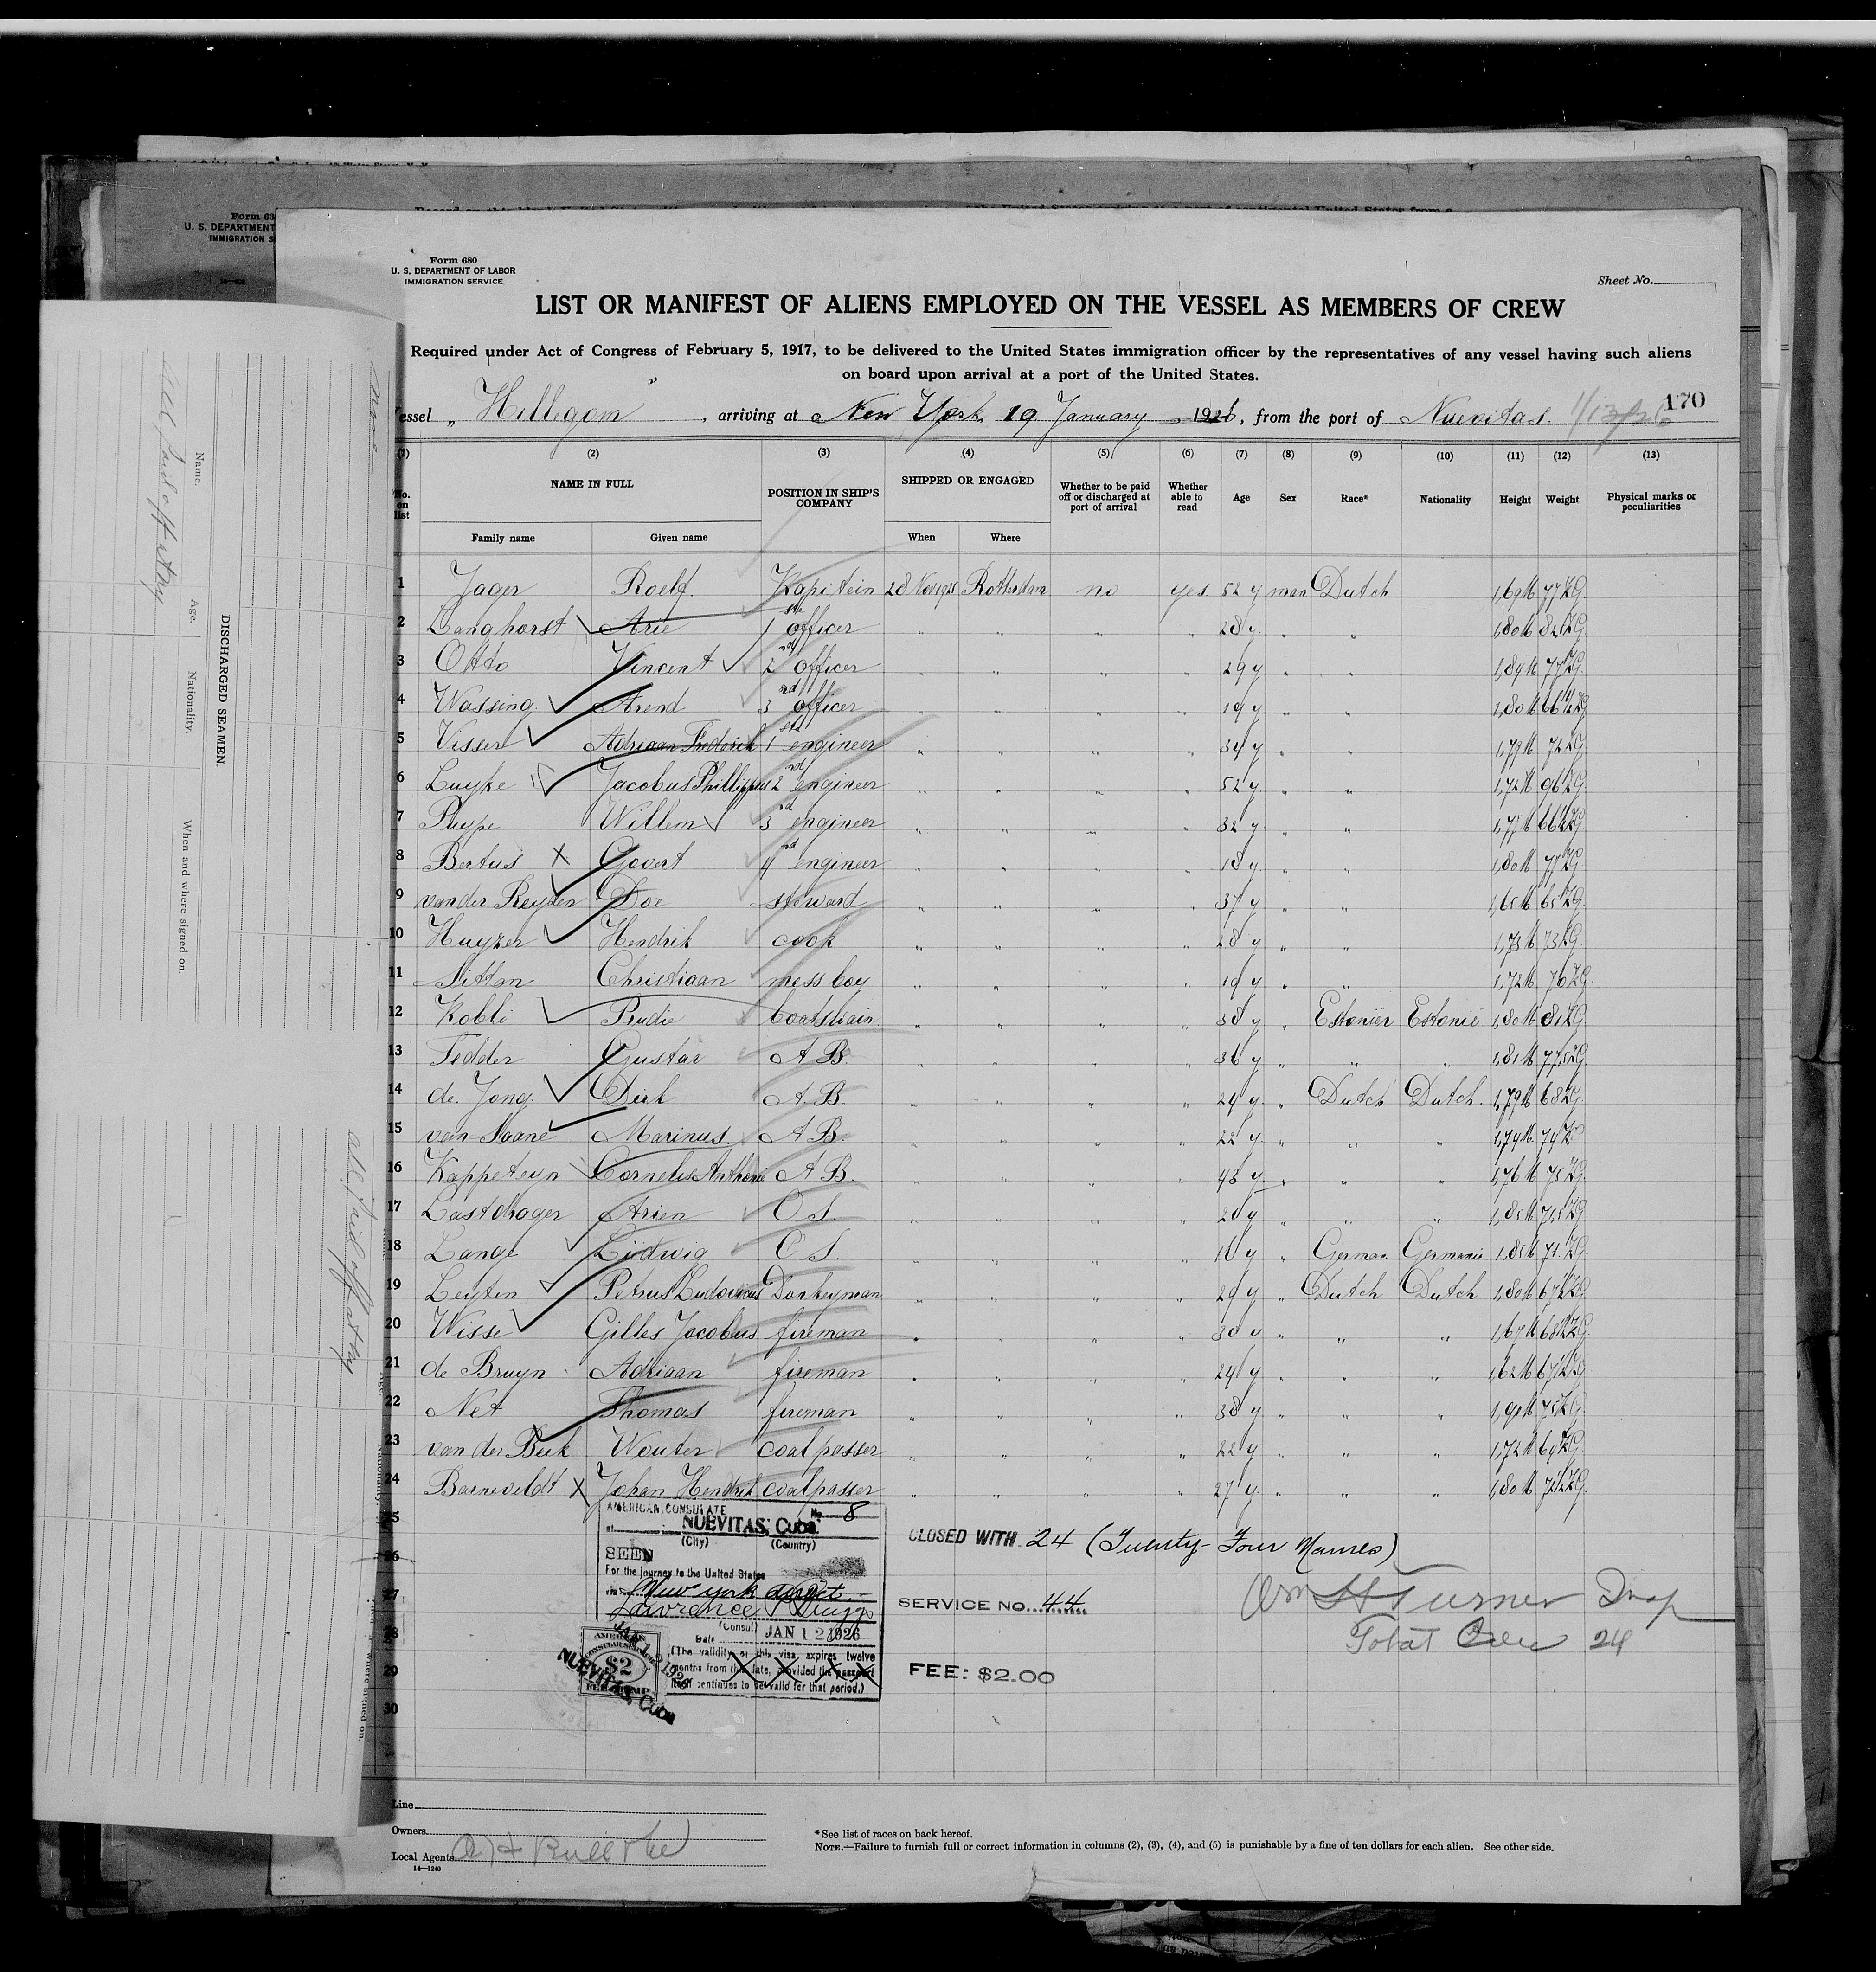 Form 63
U. S. DEPARTMENT
IMMIGRATION S
Form 680
U. S. DEPARTMENT OF LABOR
IMMIGRATION SERVICE
Sheet No.
LIST OR MANIFEST OF ALIENS EMPLOYED ON THE VESSEL AS MEMBERS OF CREW
Required under Act of Congress of February 5, 1917, to be delivered to the United States immigration officer by the representatives of any vessel having such aliens
on board upon arrival at a port of the United States.
170
essel „ Hillegom , arriving at New York 19 January 1926, from the port of Nuevitas. 1/13/26
(1) (2) (3) (4) (5) (6) (7) (8) (9) (10) (11) (12) (13)
No. on list NAME IN FULL POSITION IN SHIP'S COMPANY SHIPPED OR ENGAGED Whether to be paid off or discharged at port of arrival Whether able to read Age Sex Race* Nationality Height Weight Physical marks or peculiarities
Family name Given name When Where
1 Jager Roelf. Kapitein 28 Nov 1925 Rotterdam no yes 52 y man Dutch 1,69 M 77 KG
2 Langhorst Arie 1ste officer „ „ „ „ 28 y. „ „ 1,80 M 82 KG
3 Otto Vincent 2nd officer „ „ „ „ 29 y „ „ 1,89 M 77 KG
4 Wassing Arend 3rd officer „ „ „ „ 19 y „ „ 1,80 M 66½ KG
5 Visser Adriaan Frederik 1ste engineer „ „ „ „ 34 y „ „ 1,79 M 72 KG
6 Luyke Jacobus Phillippus 2nd engineer „ „ „ „ 52 y „ „ 1,72 M 96 KG
7 Pluype Willem 3rd engineer „ „ „ „ 32 y „ „ 66½ KG
8 Bertus Govert 4nd engineer „ „ „ „ 18 y. „ „ 1,80 M 77 KG
9 van der Reyden Doe steward „ „ „ „ 37 y „ „ 1,65 M 65 KG
10 Huyzer Hendrik cook „ „ „ „ 28 y „ „ 1,73 M 73 KG
11 Sitton Christiaan mess boy „ „ „ „ 19 y „ „ 1,72 M 76 KG
12 Kobli Prudie boatswain „ „ „ „ 38 y „ Estoniër Estonië 1,80 M 81 KG
13 Fedder Gustav A B. „ „ „ „ 36 y „ „ „ 1,81 M 77,5 KG
14 de Jong. Dirk A. B. „ „ „ „ 24 y „ Dutch Dutch. 1,79 M 68 KG
15 van Haane Marinus. A B. „ „ „ „ 22 y „ „ „ 1,74 M. 74 KG
16 Kappeteyn Cornelis Anthonie A B. „ „ „ „ 48 y „ „ „ 1,76 M 75 KG
17 Lastdrager Arien O S. „ „ „ „ 20 y „ „ „ 1,85 M 71,5 KG
18 Lange Lüdwig O S. „ „ „ „ 18 y „ German Germanie 1,85 M 71. KG
19 Leyten Petrus Ludovicus Donkeyman „ „ „ „ 29 y „ Dutch Dutch 1,80 M 67½ KG
20 Wisse Gilles Jacobus fireman „ „ „ „ 30 y „ „ „ 1,67 M 68½ KG
21 de Bruyn Adriaan fireman „ „ „ „ 24 y „ „ „ 1,62 M 67½ KG
22 Net Thomas fireman „ „ „ „ 38 y „ „ „ 75 KG
23 van der Beek Wouter coalpasser „ „ „ „ 22 y „ „ „ 1,72 M 69 KG
24 Barneveldt Johan Hendrik coalpasser „ „ „ „ 27 y. „ „ „ 1,80 M 72½ KG
25
26
27
28
29
30
AMERICAN CONSULATE No. 8
at NUEVITAS, Cuba.
(City) (Country)
SEEN
For the journey to the United States
via New York direct.
Lawrence P. Briggs
(Consul)
Date JAN 12 1926
(The validity of this visa expires twelve
months from this date, provided the passport
itself continues to be valid for that period.)
AMERICAN
CONSULAR SERVICE
$2
FEE STAMP
JAN 12 1926
NUEVITAS, Cuba
CLOSED WITH 24 (Twenty-Four Names)
SERVICE NO. 44
FEE: $2.00
Wm H Turner Insp
Total Crew 24
Line
Owners
Local Agents A H Bull & Co
14—1240
*See list of races on back hereof.
NOTE.—Failure to furnish full or correct information in columns (2), (3), (4), and (5) is punishable by a fine of ten dollars for each alien. See other side.
DISCHARGED SEAMEN.
Name. Age. Nationality. When and where signed on.